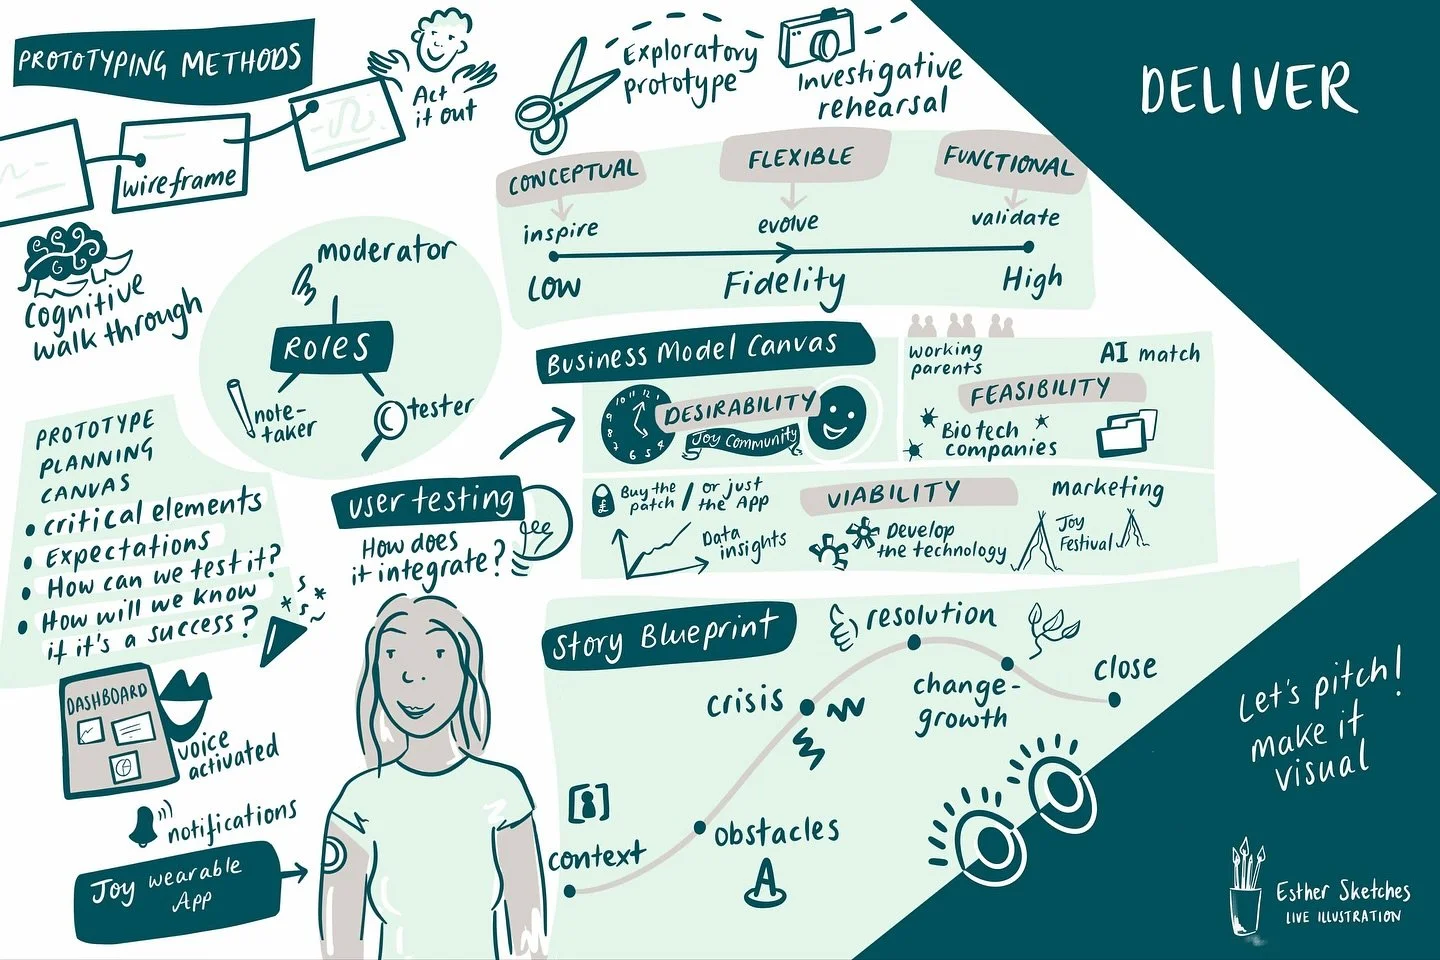 PROTOTYPING METHODS
Act
it out
wireframe
Cognitive
walk through
Exploratory
prototype
Investigative
rehearsal
DELIVER
CONCEPTUAL
FLEXIBLE
FUNCTIONAL
inspire
evolve
validate
Low
Fidelity
High
moderator
ROLES
note-
taker
tester
PROTOTYPE
PLANNING
CANVAS
• critical elements
• Expectations
• How can we test it?
• How will we know
if it's a success?
user testing
How does
it integrate?
Business Model Canvas
DESIRABILITY
Joy Community
working
parents
AI match
FEASIBILITY
Biotech
companies
Buy the
patch / or just
the App
£
Data
insights
VIABILITY
Develop
the technology
marketing
Joy
Festival
Story Blueprint
context
obstacles
crisis
resolution
change-
growth
close
DASHBOARD
voice
activated
notifications
Joy wearable
App
Let's pitch!
make it
visual
Esther Sketches
LIVE ILLUSTRATION